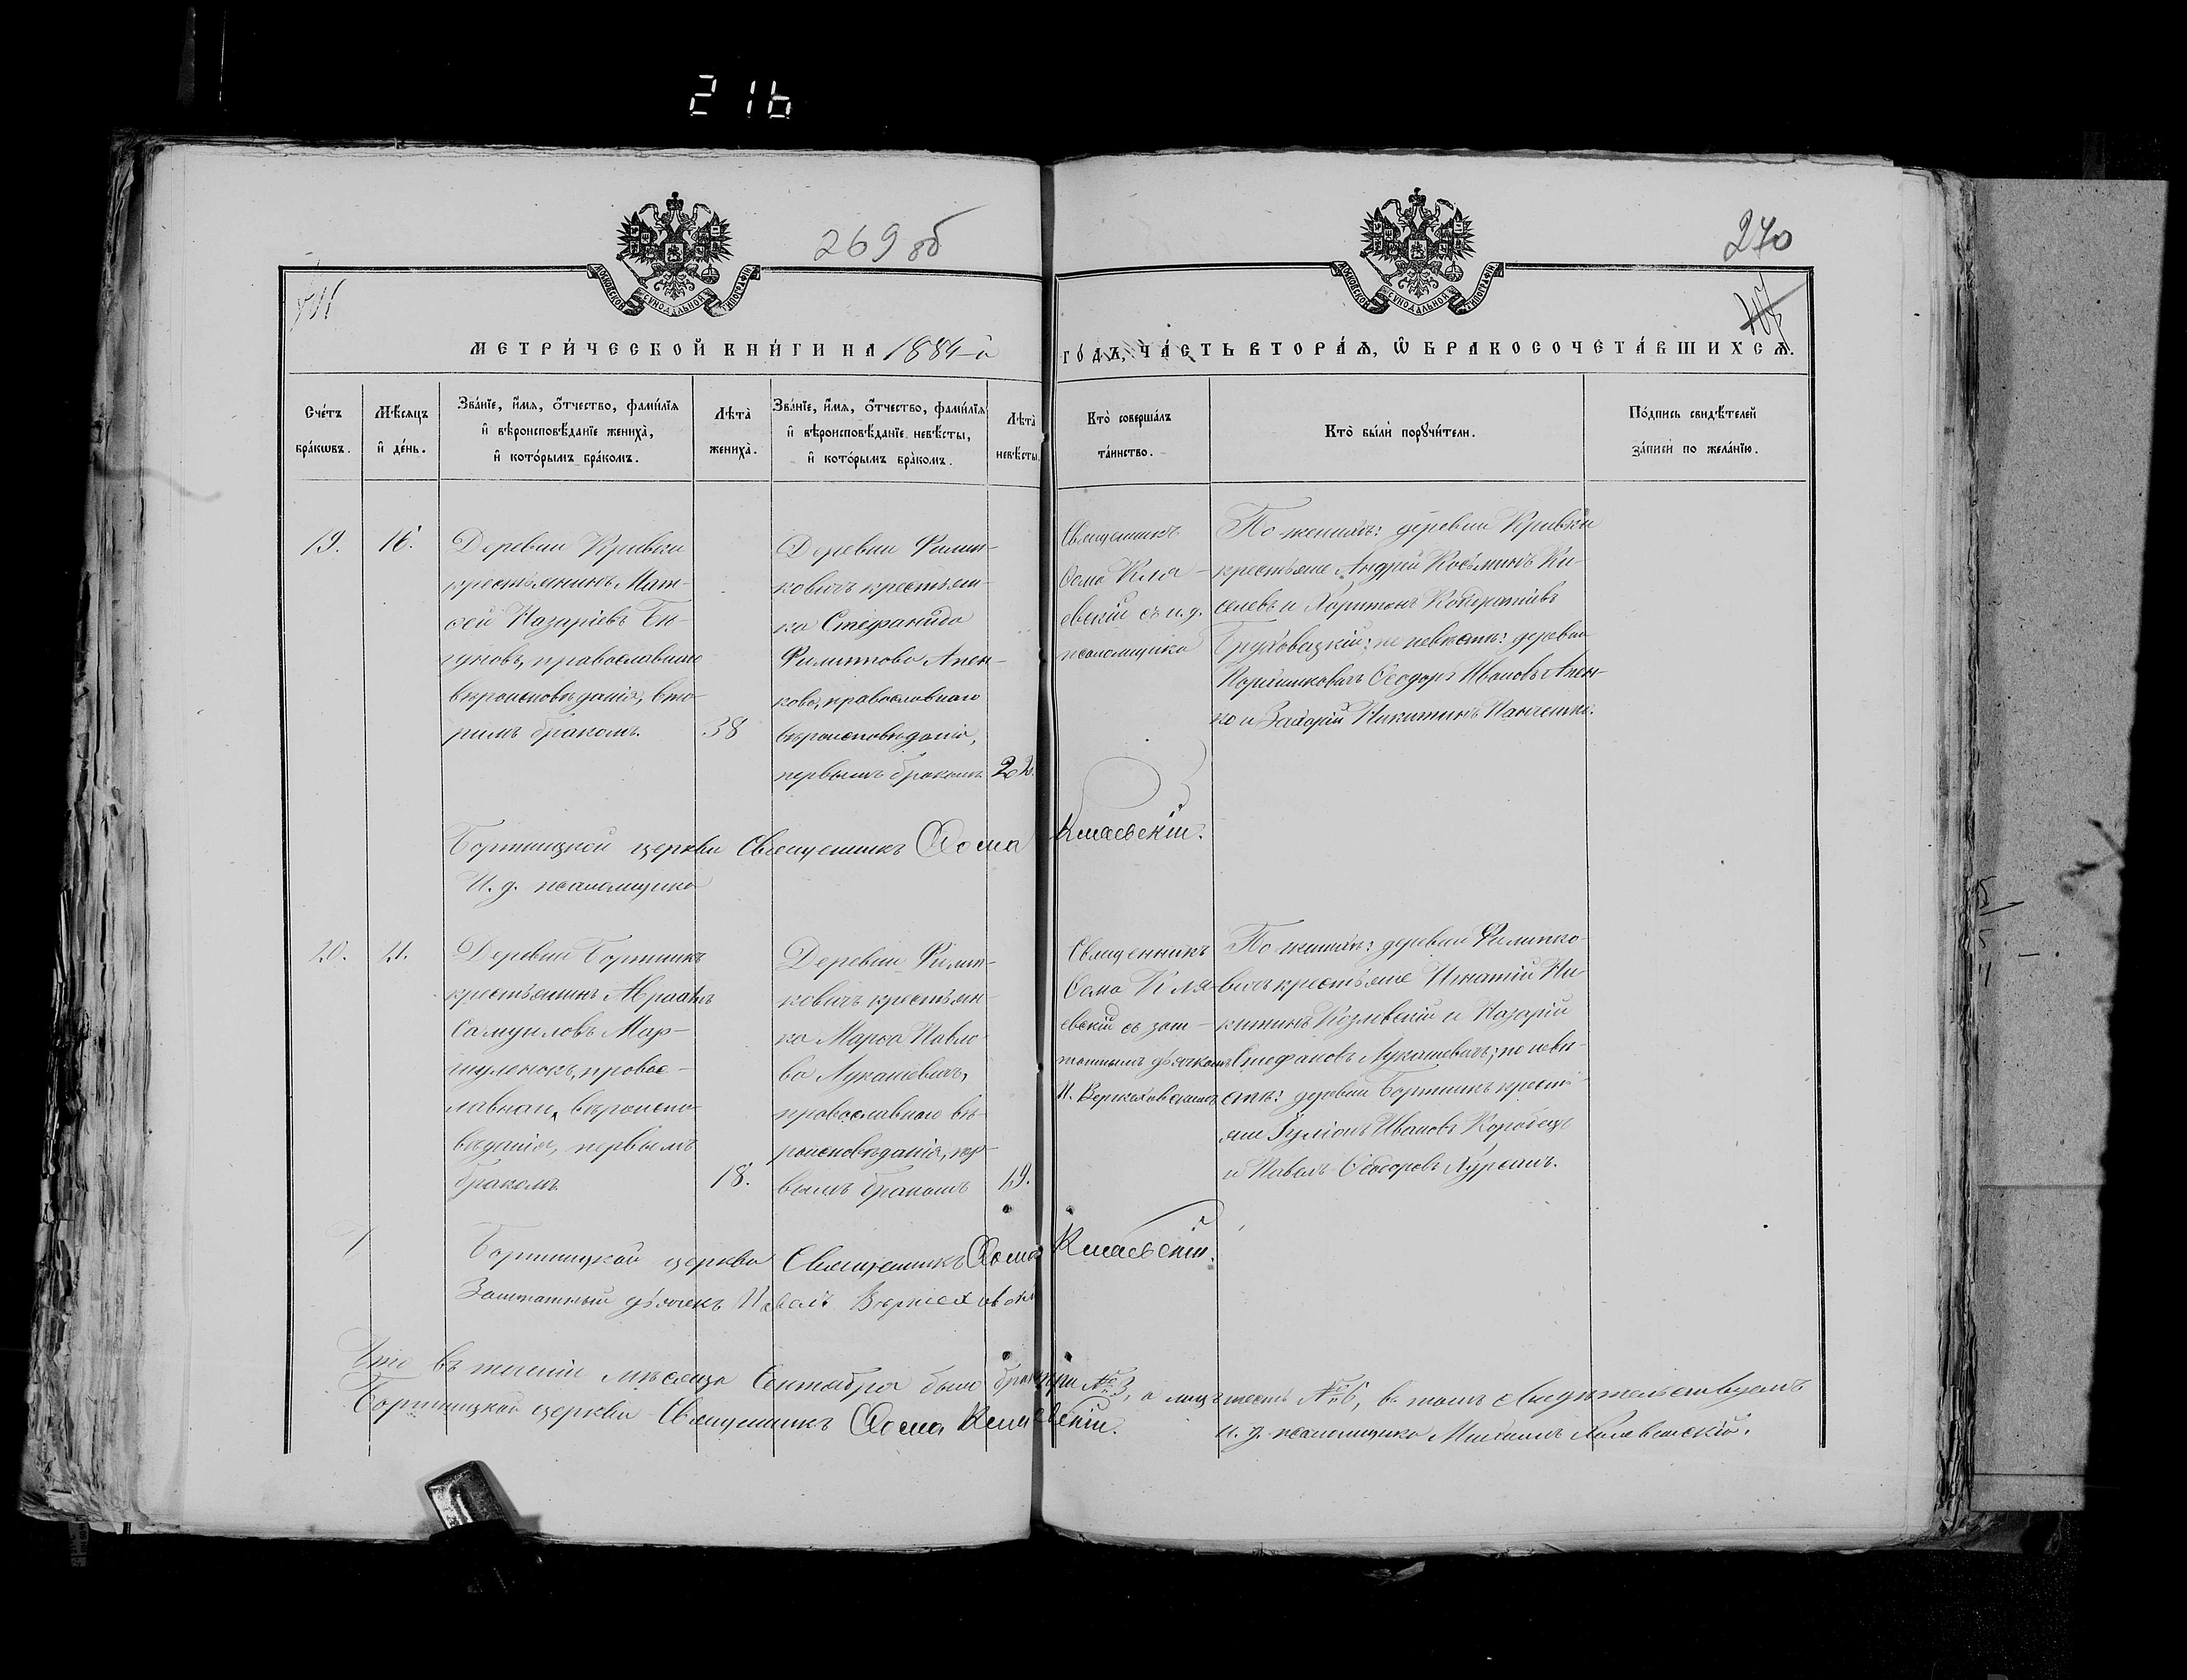 216
269 об
270
МОСКОВСКОЙ СУНОДАЛЬНОЙ ТИПОГРАФІИ
МОСКОВСКОЙ СУНОДАЛЬНОЙ ТИПОГРАФІИ
МЕТРИ́ЧЕСКОЙ КНИ́ГИ НА 1884-й
ГО́ДЪ, ЧА́СТЬ ВТОРА́Ѧ, Ѡ БРАКОСОЧЕТА́ВШИХСѦ.
Сче́тъ
бра́кѡвъ.
Мѣ́сѧцъ
и҆ де́нь.
Зва́нїе, и҆́мѧ, ѻ҆́тчество, фами́лїѧ
и҆ вѣроисповѣ́данїе жениха̀,
и҆ кото́рымъ бра́комъ.
Лѣ́та
жениха̀.
Зва́нїе, и҆́мѧ, ѻ҆́тчество, фами́лїѧ
и҆ вѣроисповѣ́данїе невѣ́сты,
и҆ кото́рымъ бра́комъ.
Лѣ́та
невѣ́сты.
Кто̀ соверша́лъ
та́инство.
Кто̀ бы́ли порꙋчи́тели.
По́дпись свидѣ́телей
за́писи по жела́нїю.
19.
16.
Деревни Кривки
крестьянинъ Мат-
ѳей Назаріевъ
православнаго
вѣроисповѣданія, вто-
рымъ бракомъ.
38
Деревни Филип-
ковичъ крестьян-
ка Стефанида
Филиппова Апен-
кова, православнаго
вѣроисповѣданія,
первымъ бракомъ
22.
Священникъ
Ѳома Кма-
евскій съ и. д.
псаломщика
По женихѣ: деревни Кривки
крестьяне Андрей Косьминъ Ки-
селевъ и Харитонъ Кондратіевъ
по невѣстѣ: деревни
Ѳеодоръ Ивановъ Апен-
ко и Никитинъ
Бортницкой церкви Священникъ Ѳома Кмаевскій.
И. д. псаломщика
20.
21.
Деревни Бортникъ
крестьянинъ Авраамъ
Самуиловъ Мар-
шуленокъ, правос-
лавнаго вѣроиспо-
вѣданія, первымъ
бракомъ
18.
Деревни Филип-
ковичъ крестьян-
ка Марѳа Павло-
ва Лукашевичъ,
православнаго вѣ-
роисповѣданія, пер-
вымъ бракомъ
19.
Священникъ
Ѳома Кма-
евскій съ заш-
татнымъ дьячкомъ
П. Вержеховскимъ
По женихѣ: деревни Филипко-
вичъ крестьяне Игнатій Ни-
китинъ Козловскій и Назарій
Стефановъ Лукашевичъ; по невѣ-
стѣ: деревни Бортникъ кресть-
яне Іуліанъ Ивановъ Коробецъ
и Павелъ Ѳеодоровъ Хурсанъ.
Бортницкой церкви Священникъ Ѳома Кмаевскій.
Заштатный дьячекъ Павелъ
Что въ теченіи мѣсяца Сентября было три № 3, а лицъ шесть № 6, въ томъ свидѣтельствуемъ
Бортницкой церкви Священникъ Ѳома Кмаевскій.
и. д. псаломщика Михаилъ